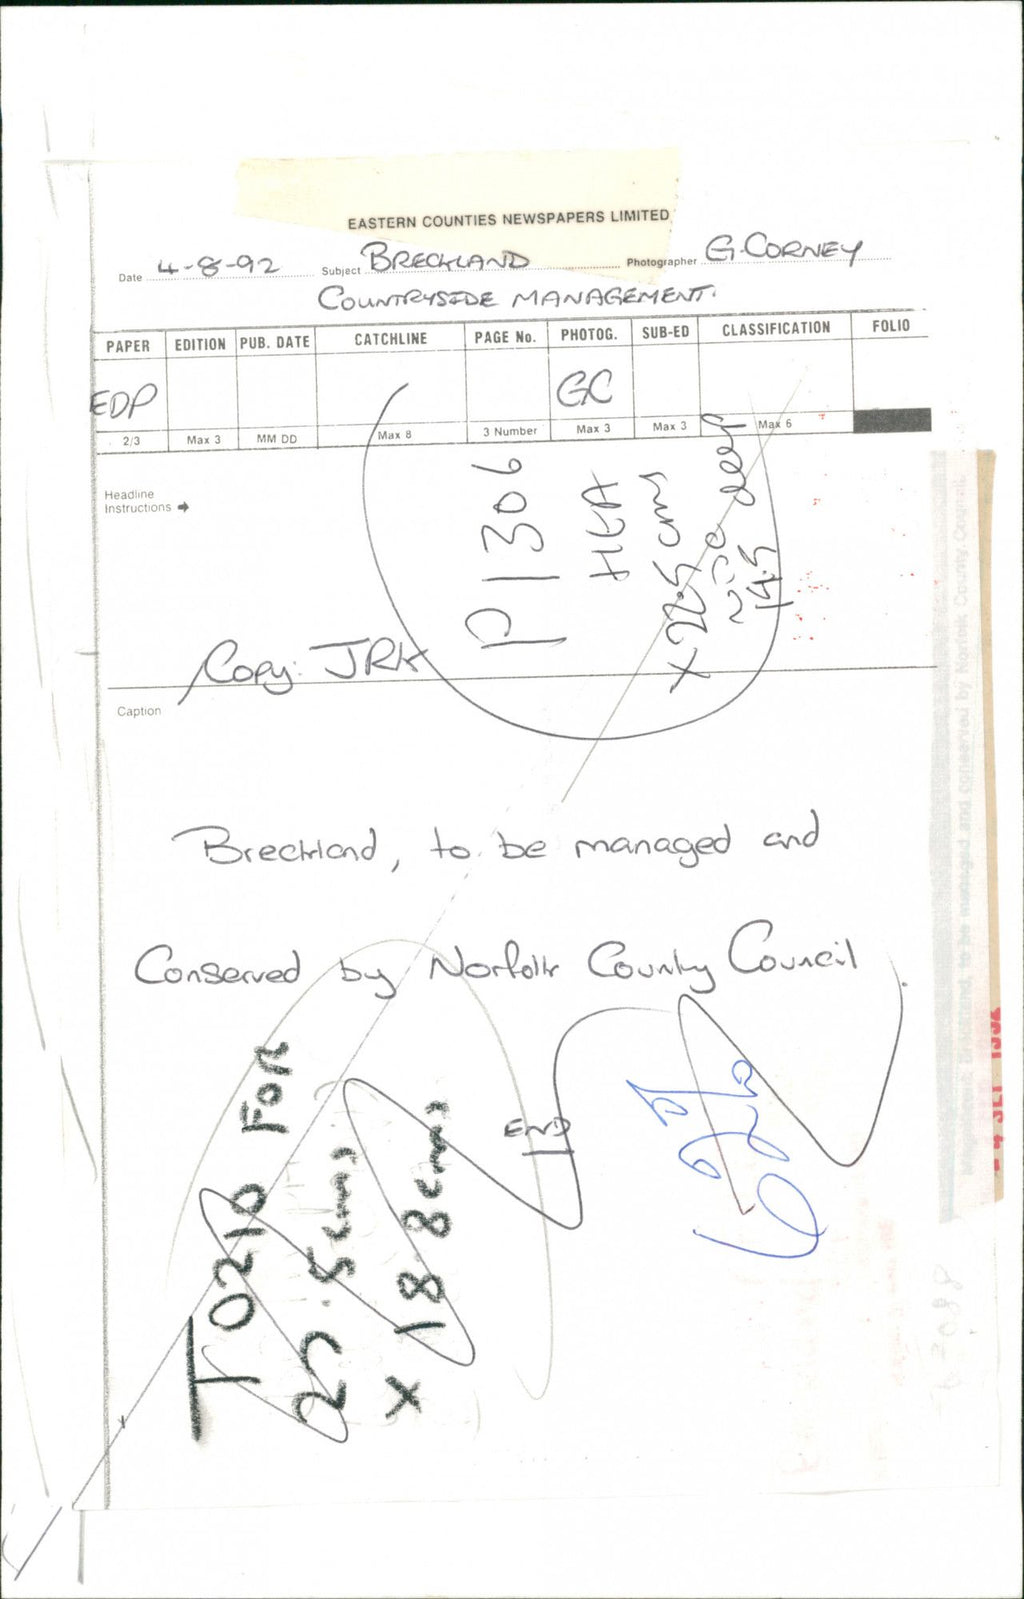 EASTERN COUNTIES NEWSPAPERS LIMITED
Date 4-8-92 Subject BRECKLAND Photographer G.CORNEY
COUNTRYSIDE MANAGEMENT.
PAPER EDITION PUB. DATE CATCHLINE PAGE No. PHOTOG. SUB-ED CLASSIFICATION FOLIO
EDP GC
2/3 Max 3 MM DD Max 8 3 Number Max 3 Max 3 Max 6
Headline
Instructions
P1306
x 22.5 cms
14.5 deep
Copy: JRK
Caption
Breckland, to be managed and
Conserved by Norfolk County Council.
END
T0210 FOR
25.5cms
x 18.8cms